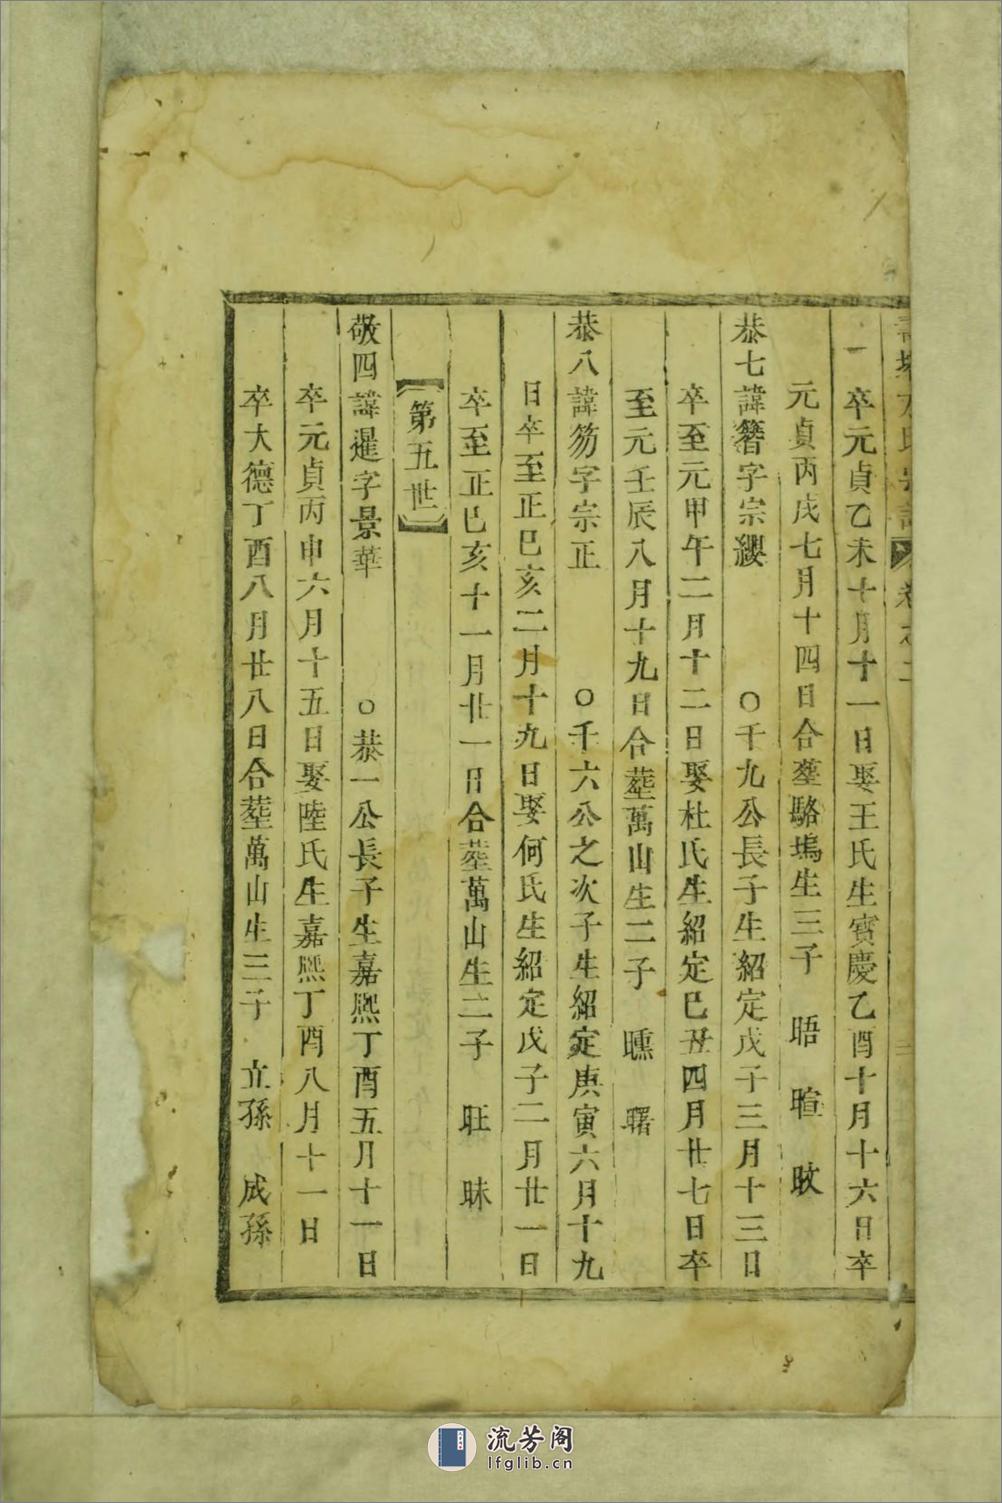 方氏宗譜 卷之二
卒元貞乙未十月十一日娶王氏生寶慶乙酉十月十六日卒
元貞丙戌七月十四日合塟駱塢生三子 晤 暄 旼
恭七諱簪字宗纓 〇千九公長子生紹定戊子三月十三日
卒至元甲午二月十二日娶杜氏生紹定巳丑四月廿七日卒
至元壬辰八月十九日合塟萬山生二子 曛 曙
恭八諱笏字宗正 〇千六公之次子生紹定庚寅六月十九
日卒至正巳亥二月十九日娶何氏生紹定戊子二月廿一日
卒至正巳亥十一月廿一日合塟萬山生二子 旺 昧
【第五世】
敬四諱暹字景華 〇恭一公長子生嘉熈丁酉五月十一日
卒元貞丙申六月十五日娶陸氏生嘉熈丁酉八月十一日
卒大德丁酉八月廿八日合塟萬山生三子 立孫 成孫
流芳阁
lfglib.cn